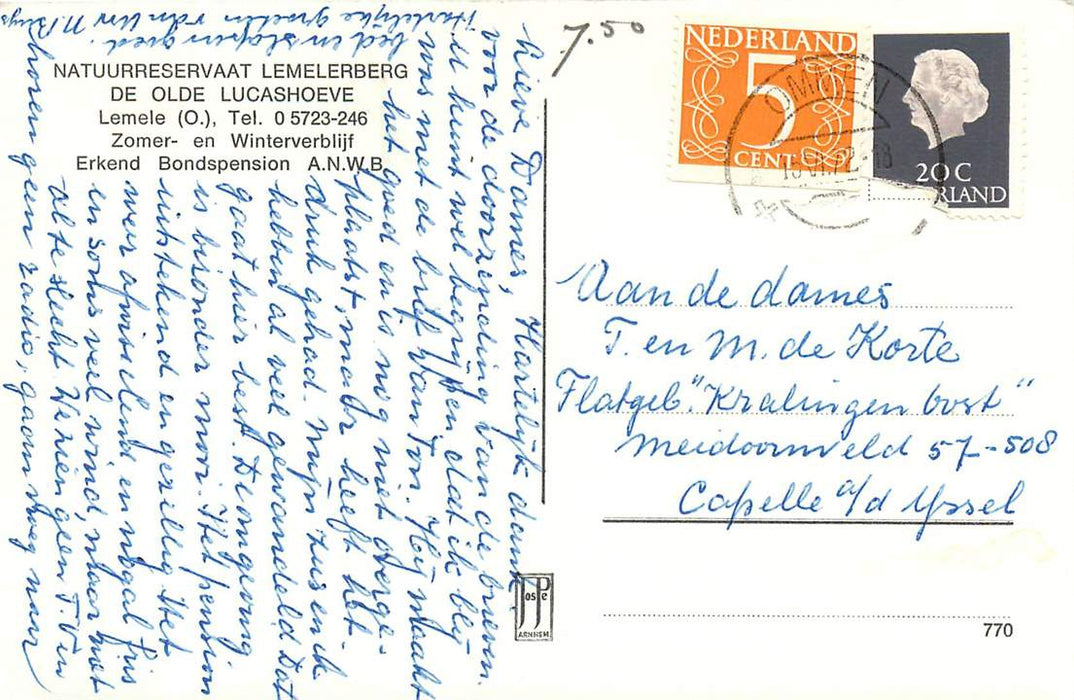 7.50
NEDERLAND
5
CENT
20 C
ERLAND
OMMEN
NATUURRESERVAAT LEMELERBERG
DE OLDE LUCASHOEVE
Lemele (O.), Tel. 0 5723-246
Zomer- en Winterverblijf
Erkend Bondspension A.N.W.B.
Lieve Dames, Hartelijk dank
voor de doorzending van de brieven.
U kunt wel begrijpen dat ik blij
was met de brief van Ton. Hij maakt
het goed en is nog niet overge-
plaatst, maar heeft het
druk gehad. Mijn zus en ik
hebben al veel gewandeld. Dat
gaat hier best. De omgeving
is bizonder mooi. Het pension
uitstekend en gezellig. Het
weer afwisselend en nogal fris
en soms veel wind, maar niet
al te slecht. We zien geen T.V. en
horen geen radio, gaan vroeg naar
bed en slapen goed.
Hartelijke groeten v. den Uw
Aan de dames
T. en M. de Korte
Flatgeb. "Kralingen oost"
Meidoornveld 57-508
Capelle a/d Yssel
JosPe
ARNHEM.
770